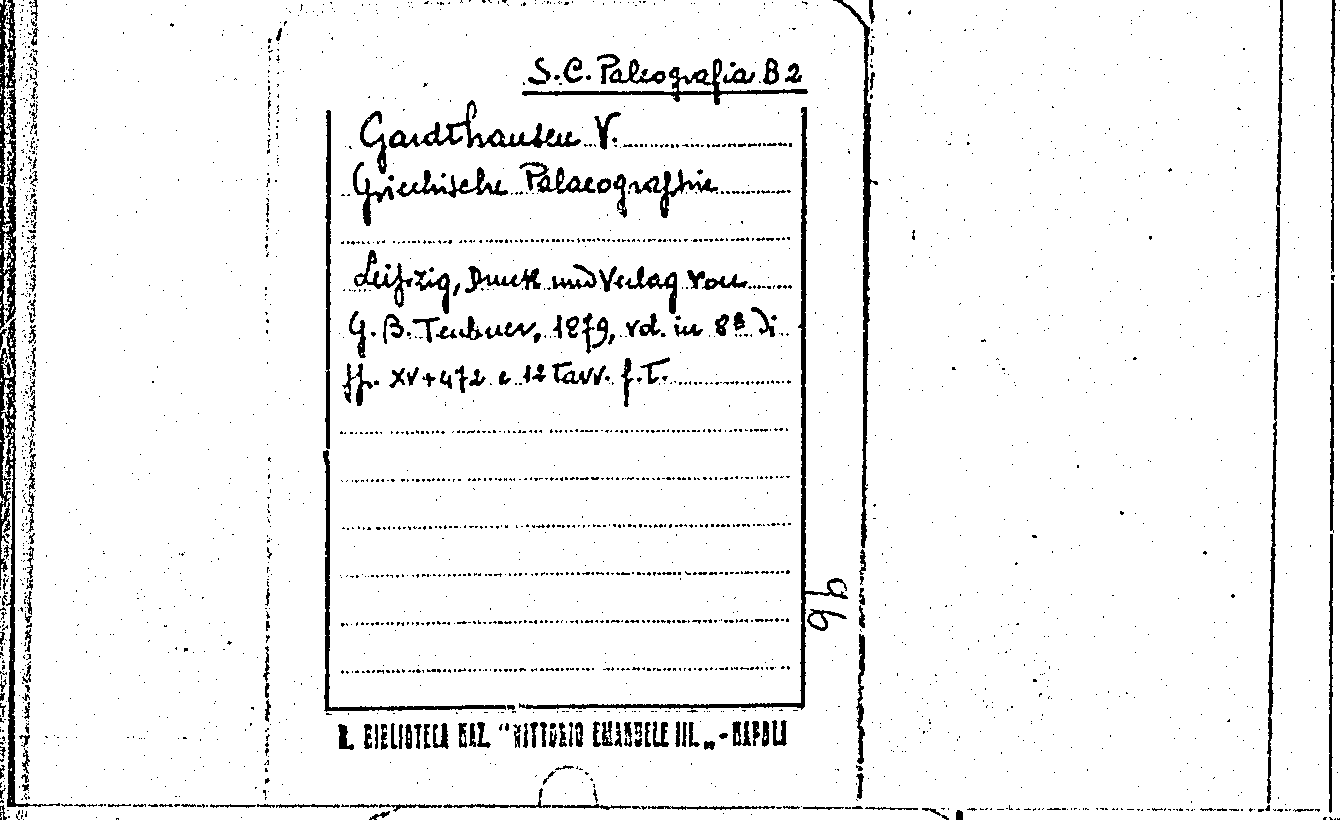 S.C. Paleografia B 2
Gardthausen V.
Griechische Palaeographie
Leipzig, Druck und Verlag von
G. B. Teubner, 1879, vol. in 8ª di
pp. XV+472 e 12 Tavv. f.T.
96
R. BIBLIOTECA NAZ. "VITTORIO EMANUELE III. „ - NAPOLI